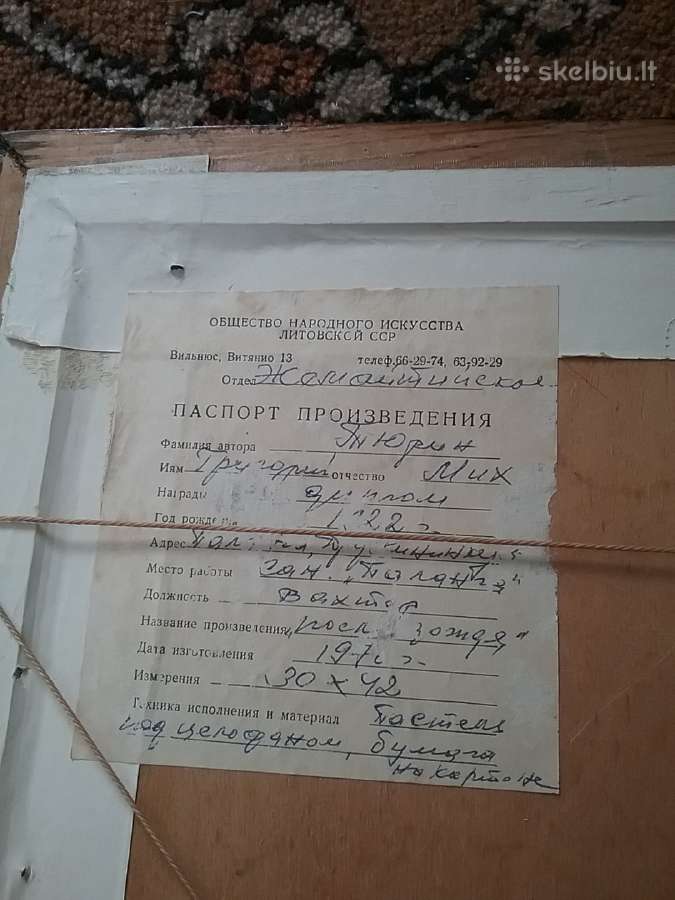 skelbiu.lt
ОБЩЕСТВО НАРОДНОГО ИСКУССТВА
ЛИТОВСКОЙ ССР
Вильнюс, Витянио 13 телеф. 66-29-74, 63-92-29
Отдел Жемайтийское
ПАСПОРТ ПРОИЗВЕДЕНИЯ
Фамилия автора Тюрин
Иям Григорий отчество Мих
Награды диплом
Год рождения 1922 г.
Адрес
Место работы сан. "Паланга"
Должность Вахтер
Название произведения "После дождя"
Дата изготовления
Измерения 30 х 42
Техника исполнения и материал Пастель
под целофаном, бумага
на картоне